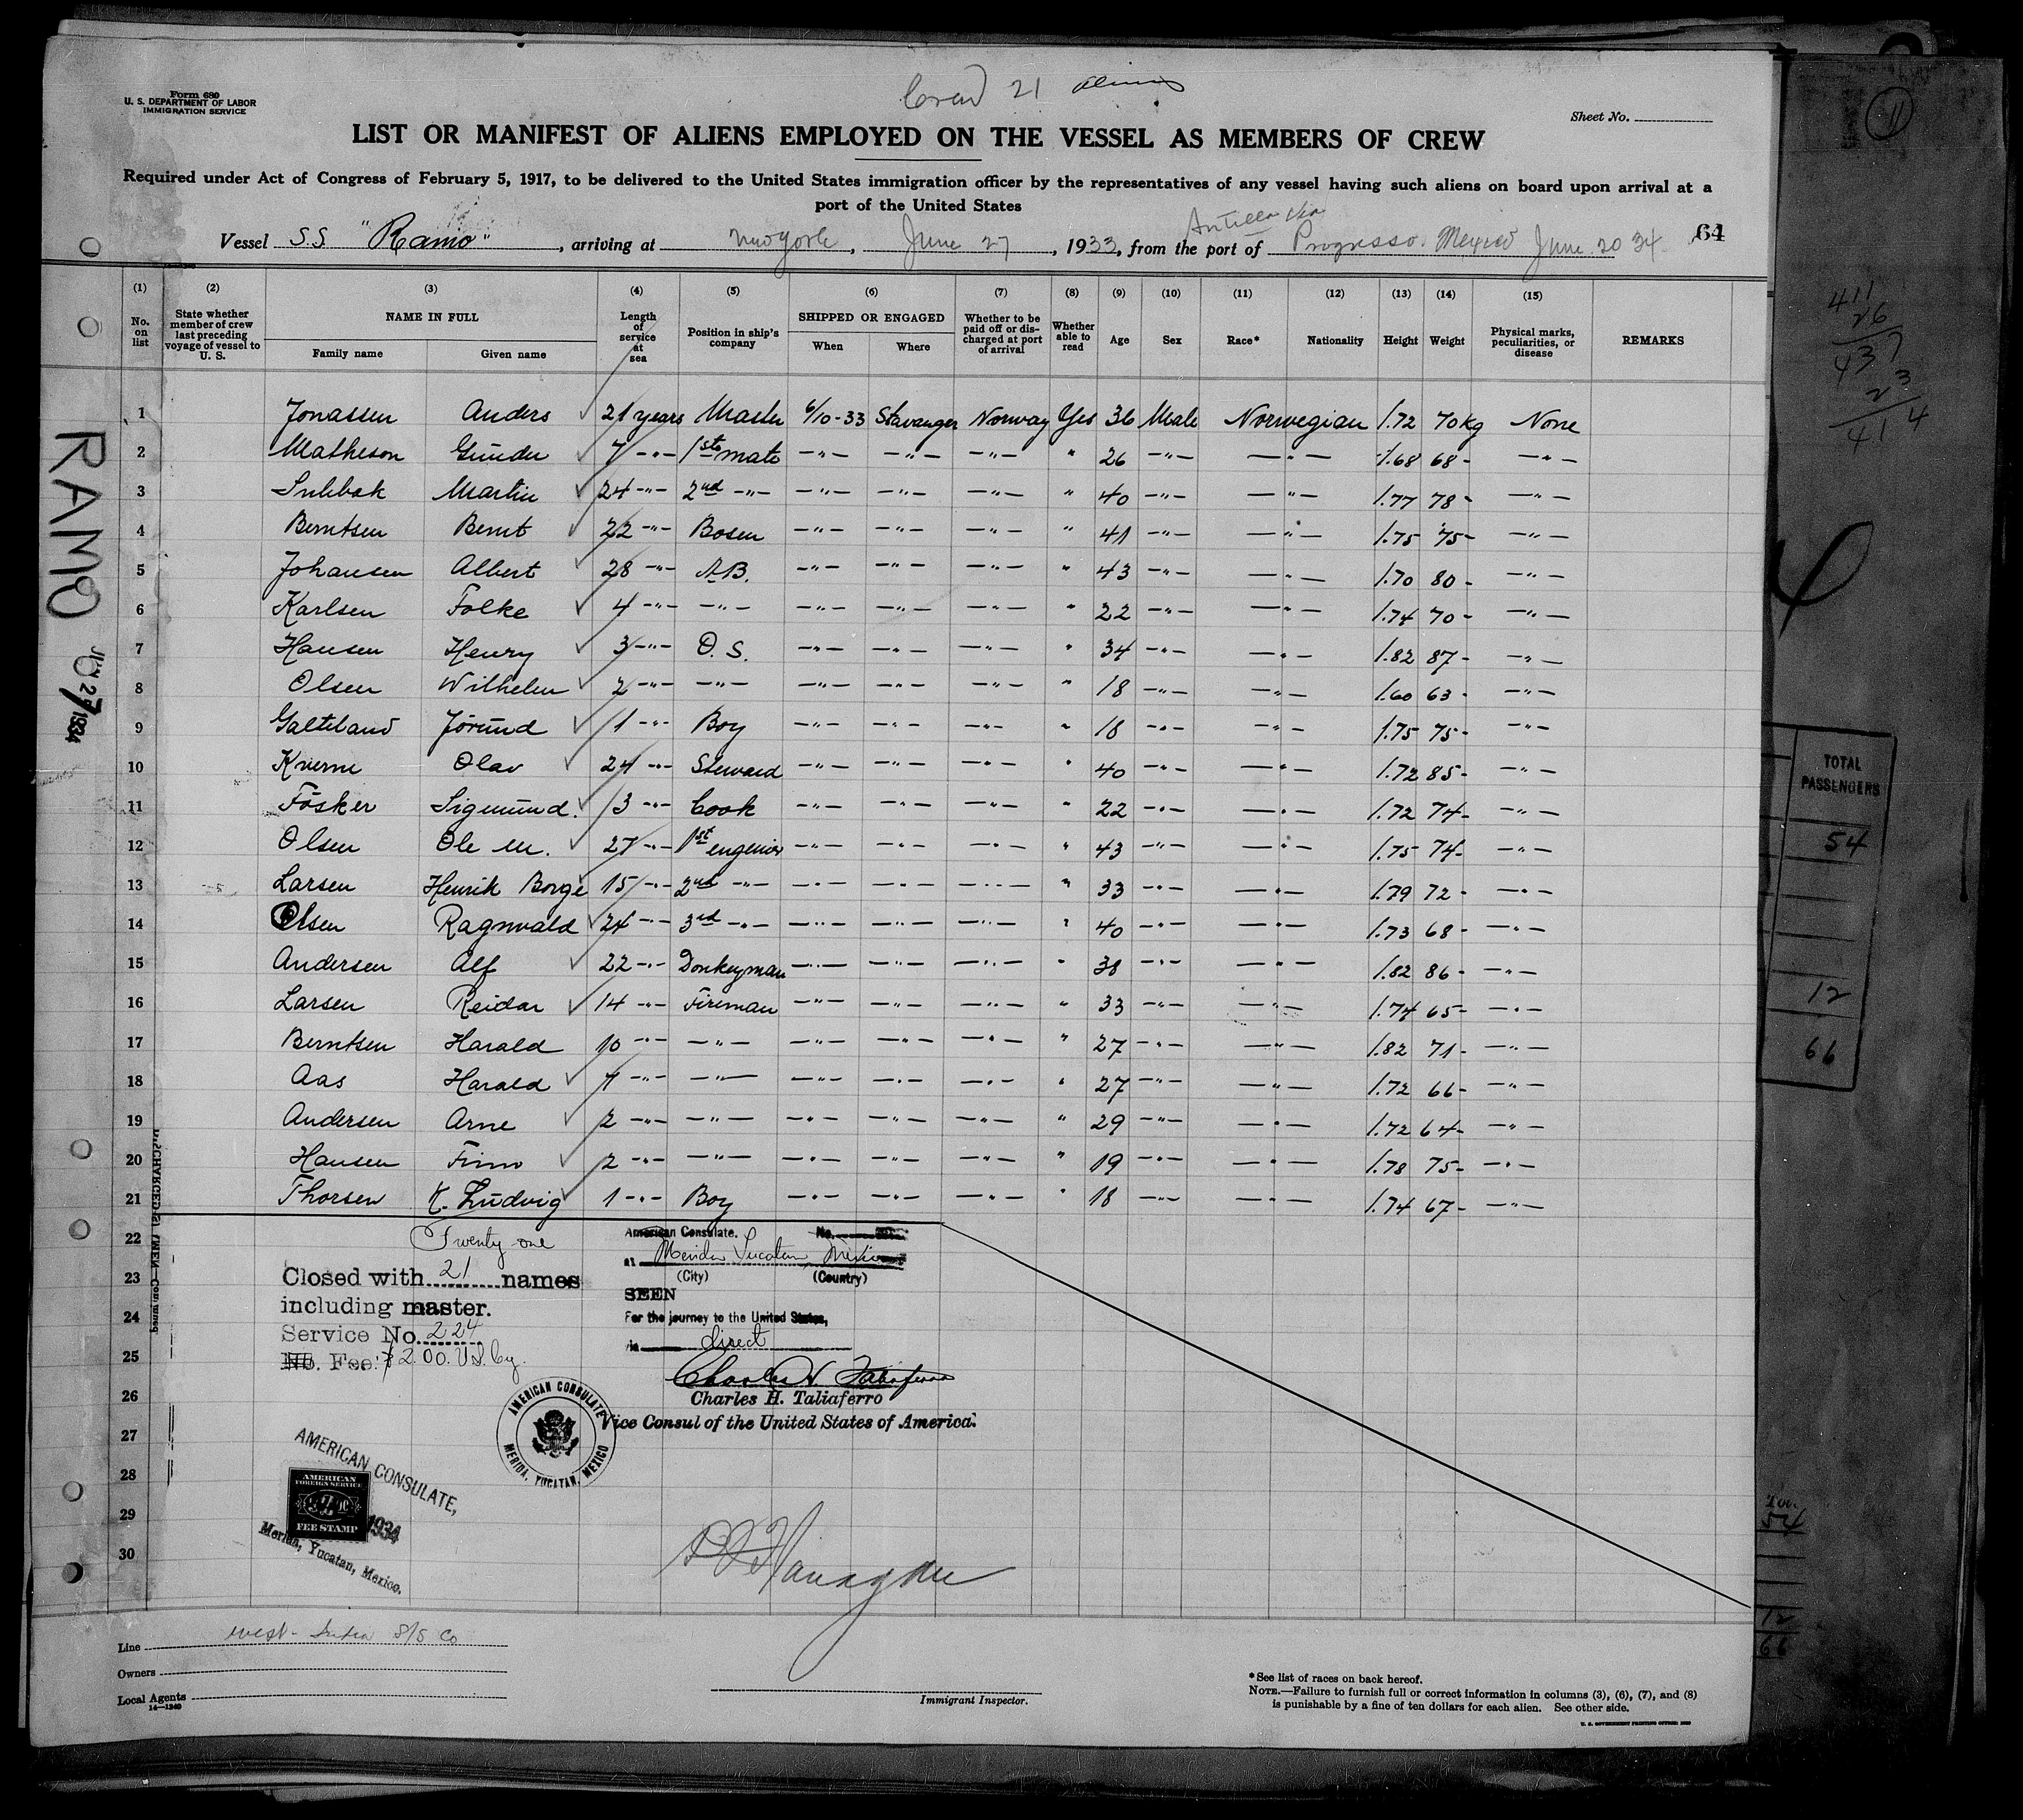 Form 680
U. S. DEPARTMENT OF LABOR
IMMIGRATION SERVICE
Crew 21 aliens
Sheet No.
LIST OR MANIFEST OF ALIENS EMPLOYED ON THE VESSEL AS MEMBERS OF CREW
Required under Act of Congress of February 5, 1917, to be delivered to the United States immigration officer by the representatives of any vessel having such aliens on board upon arrival at a
port of the United States
Antilla Via
Vessel S.S. "Ramo", arriving at New York, June 27, 1933, from the port of Progresso Mexico June 20 34 64
(1) (2) (3) (4) (5) (6) (7) (8) (9) (10) (11) (12) (13) (14) (15)
No. on list State whether member of crew last preceding voyage of vessel to U. S. NAME IN FULL Family name Given name Length of service at sea Position in ship's company SHIPPED OR ENGAGED When Where Whether to be paid off or discharged at port of arrival Whether able to read Age Sex Race* Nationality Height Weight Physical marks, peculiarities, or disease REMARKS
1 Jonassen Anders 21 years Master 6/10-33 Stavanger Norway Yes 36 Male Norwegian 1.72 70 kg None
2 Matheson Gunder 7 -"- 1st mate -"- -"- -"- " 26 -"- -"- 1.68 68 - -"-
3 Martin 24 -"- 2nd -"- -"- -"- -"- " 40 -"- -"- 1.77 78 - -"-
4 Berntsen Bernt 22 -"- Bosen -"- -"- -"- " 41 -"- -"- 1.75 75 - -"-
5 Johansen Albert 28 -"- A.B. -"- -"- -"- " 43 -"- -"- 1.70 80 - -"-
6 Karlsen Folke 4 -"- -"- -"- -"- -"- " 22 -"- -"- 1.74 70 - -"-
7 Hansen Henry 3 -"- O. S. -"- -"- -"- " 34 -"- -"- 1.82 87 - -"-
8 Olsen Wilhelm 2 -"- -"- -"- -"- -"- " 18 -"- -"- 1.60 63 - -"-
9 Galteland Jörund 1 -"- Boy -"- -"- -"- " 18 -"- -"- 1.75 75 - -"-
10 Kverne Olav 24 -"- Steward -"- -"- -"- " 40 -"- -"- 1.72 85 - -"-
11 Fosker Sigmund. 3 -"- Cook -"- -"- -"- " 22 -"- -"- 1.72 74 - -"-
12 Olsen Ole M. 27 -"- 1st engenior -"- -"- -"- " 43 -"- -"- 1.75 74 - -"-
13 Larsen Henrik Borge 15 -"- 2nd -"- -"- -"- -"- " 33 -"- -"- 1.79 72 - -"-
14 Olsen Ragnvald 24 -"- 3rd -"- -"- -"- -"- " 40 -"- -"- 1.73 68 - -"-
15 Andersen Alf 22 -"- Donkeyman -"- -"- -"- " 38 -"- -"- 1.82 86 - -"-
16 Larsen Reidar 14 -"- Fireman -"- -"- -"- " 33 -"- -"- 1.74 65 - -"-
17 Berntsen Harald 10 -"- -"- -"- -"- -"- " 27 -"- -"- 1.82 71 - -"-
18 Aas Harald 7 -"- -"- -"- -"- -"- " 27 -"- -"- 1.72 66 - -"-
19 Andersen Arne 2 -"- -"- -"- -"- -"- " 29 -"- -"- 1.72 64 - -"-
20 Hansen Finn 2 -"- -"- -"- -"- -"- " 19 -"- -"- 1.78 75 - -"-
21 Thorsen K. Ludvig 1 -"- Boy -"- -"- -"- " 18 -"- -"- 1.74 67 - -"-
22
23
24
25
26
27
28
29
30
Twenty one
Closed with 21 names
including master.
Service No. 224
No. Fee: $2.00. U.S. Cy.
American Consulate. No.
at Merida Yucatan, Mexico
(City) (Country)
SEEN
For the journey to the United States,
direct
Charles H. Taliaferro
Charles H. Taliaferro
Vice Consul of the United States of America.
AMERICAN CONSULATE
MERIDA, YUCATAN, MEXICO
AMERICAN CONSULATE,
1934
Merida, Yucatan, Mexico.
AMERICAN
FOREIGN SERVICE
FEE STAMP
Line West-India S/S Co
Owners
Local Agents
14—1240
Immigrant Inspector.
*See list of races on back hereof.
NOTE.—Failure to furnish full or correct information in columns (3), (6), (7), and (8)
is punishable by a fine of ten dollars for each alien. See other side.
U. S. GOVERNMENT PRINTING OFFICE
RAMO
JUN 27 1934
DISCHARGED SEAMEN—Continued
11
411
26
437
23
414
TOTAL
PASSENGERS
54
12
66
54
12
66